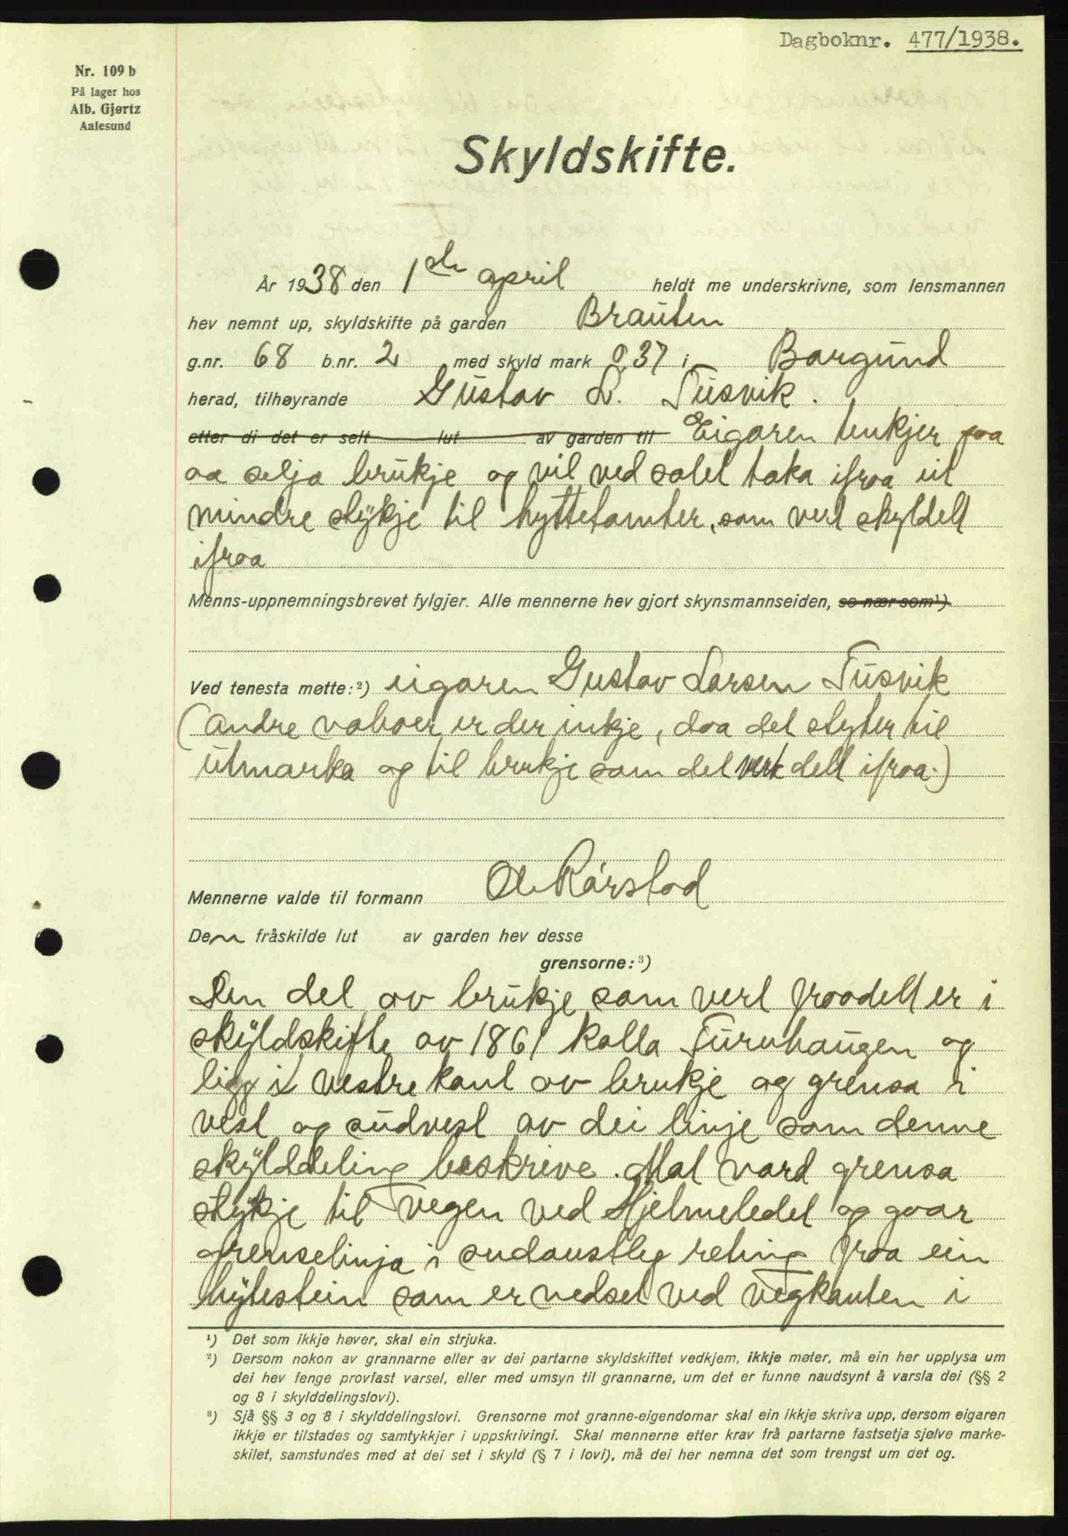 Dagboknr. 477/1938.
Nr. 109 b
På lager hos
Alb. Gjørtz
Aalesund
Skyldskifte.
År 1938 den 1ste april heldt me underskrivne, som lensmannen
hev nemnt up, skyldskifte på garden Brauten
g.nr. 68 b.nr. 2 med skyld mark 0,37 i Borgund
herad, tilhøyrande Gustav L. Tusvik.
etter di det er selt lut av garden til Eigaren tenkjer paa
aa selja brukje og vil ved salet taka ifraa eit
mindre stykje til hyttetomter, som vert skyldelt
ifraa
Menns-uppnemningsbrevet fylgjer. Alle mennerne hev gjort skynsmannseiden, so nær som¹)
Ved tenesta møtte:²) eigaren Gustav Larsen Tusvik
(andre naboer er der inkje, daa det støter til
utmarka og til brukje som del vert delt ifraa.)
Mennerne valde til formann O. Rørstad
Den fråskilde lut av garden hev desse
grensorne:³)
Den del av brukje som vert fraadelt er i
skyldskifte av 1861 kalla Furuhaugen og
ligg i vestre kant av brukje og grensa i
vest og sudvest av dei linje som denne
skylddeling beskrive. Mot nord grensa
stykje til vegen ved Hjelmeledet og gaar
grenselinja i sudaustleg reting fraa ein
bytestein som er nedset ved vegkanten i
¹) Det som ikkje høver, skal ein strjuka.
²) Dersom nokon av grannarne eller av dei partarne skyldskiftet vedkjem, ikkje møter, må ein her upplysa um
dei hev fenge provfast varsel, eller med umsyn til grannarne, um det er funne naudsynt å varsla dei (§§ 2
og 8 i skylddelingslovi).
³) Sjå §§ 3 og 8 i skylddelingslovi. Grensorne mot granne-eigendomar skal ein ikkje skriva upp, dersom eigaren
ikkje er tilstades og samtykkjer i uppskrivingi. Skal mennerne etter krav frå partarne fastsetja sjølve marke-
skilet, samstundes med at dei set i skyld (§ 7 i lovi), må dei her nemna det som trengst um det og.